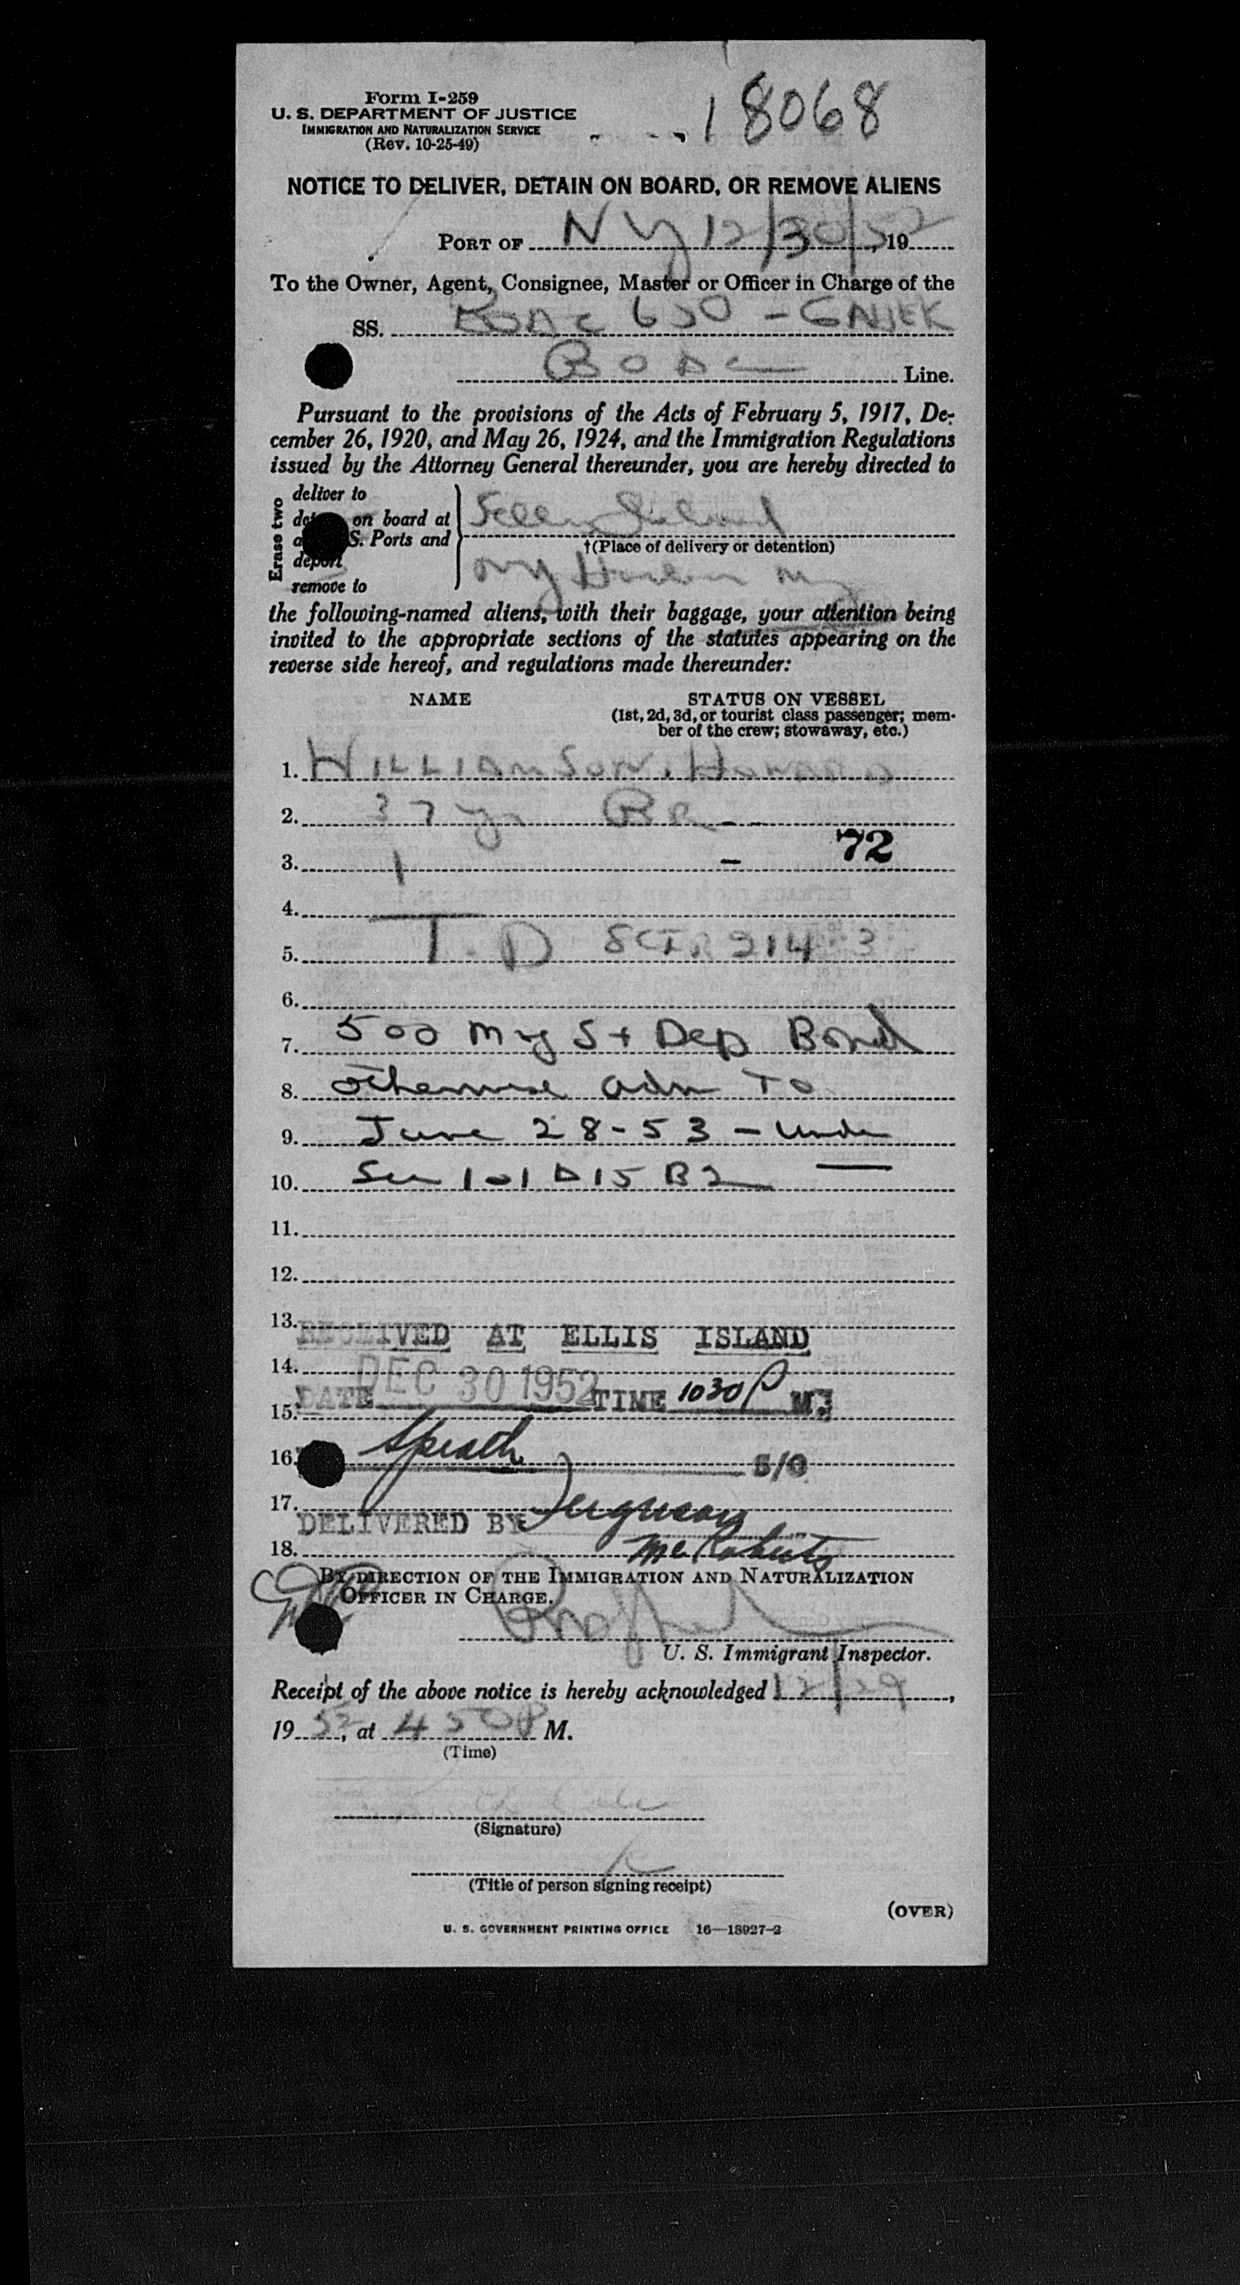 Form I-259
18068
U. S. DEPARTMENT OF JUSTICE
IMMIGRATION AND NATURALIZATION SERVICE
(Rev. 10-25-49)
NOTICE TO DELIVER, DETAIN ON BOARD, OR REMOVE ALIENS
PORT OF NY 12/30/52, 19
To the Owner, Agent, Consignee, Master or Officer in Charge of the
SS. BOAC 650 -
BOAC Line.
Pursuant to the provisions of the Acts of February 5, 1917, De-
cember 26, 1920, and May 26, 1924, and the Immigration Regulations
issued by the Attorney General thereunder, you are hereby directed to
Erase two
deliver to
on board at
S. Ports and
deport
remove to
Ellis Island
†(Place of delivery or detention)
NY Harbor NY
the following-named aliens, with their baggage, your attention being
invited to the appropriate sections of the statutes appearing on the
reverse side hereof, and regulations made thereunder:
NAME STATUS ON VESSEL
(1st, 2d, 3d, or tourist class passenger; mem-
ber of the crew; stowaway, etc.)
1. WILLIAMSON, HOWARD
2. 37 yr Br --
3. 1 - 72
4.
5. T. D 8CFR 214-3
6.
7. 500 My S+ Dep Bond
8. otherwise adm To
9. June 28-53 - under
10. Sec 101 A 15 B2
11.
12.
13.
RECEIVED AT ELLIS ISLAND
14.
DATE DEC 30 1952 TIME 1030 P M.
15.
16. Speath S/O
17.
DELIVERED BY Ferguson
18. McRoberts
BY DIRECTION OF THE IMMIGRATION AND NATURALIZATION
OFFICER IN CHARGE.
U. S. Immigrant Inspector.
Receipt of the above notice is hereby acknowledged 12/29,
19 52, at 4 50 P M.
(Time)
(Signature)
(Title of person signing receipt)
(OVER)
U. S. GOVERNMENT PRINTING OFFICE 16—18927-2